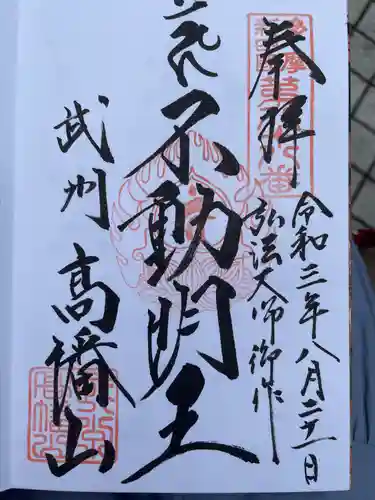 奉拝
令和三年八月二十一日
弘法大師御作
不動明王
武州 高幡山